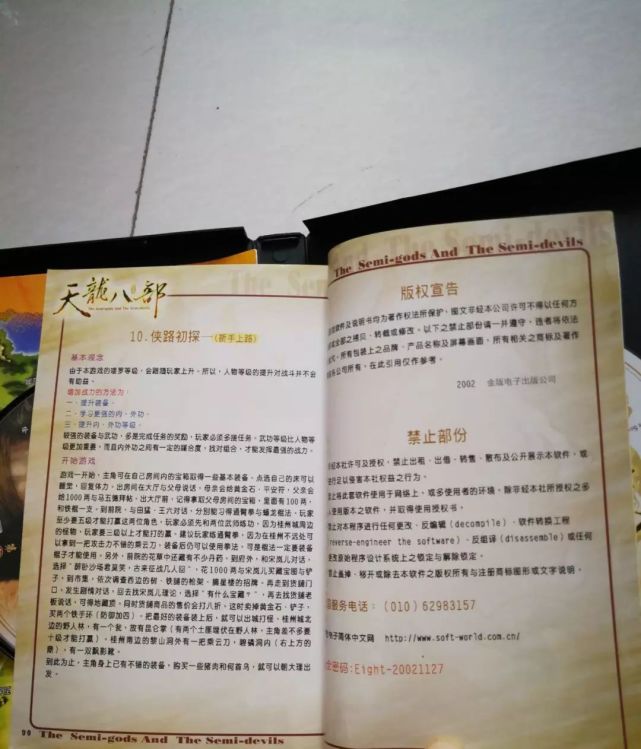 天龍八部
The Semi-gods And The Semi-devils
10.侠路初探—(新手上路)
基本观念
由于本游戏的喽罗等级，会跟随玩家上升。所以，人物等级的提升对战斗并不会有助益。
增加战力的方法为：
一、提升装备。
二、学习更强的内、外功。
三、提升内、外功等级。
较强的装备与武功，多是完成任务的奖励，玩家必须多接任务。武功等级比人物等
级更加重要，而且内外功之间有一定的缘合度，找对组合，才能发挥最强的战力。
开始游戏
游戏一开始，主角可在自己房间内的宝箱取得一些基本装备，点选自己的床可以
睡觉，回复体力，出房间在大厅与父母说话，母亲会给黄金石、平安符，父亲会
给1000两与马五情拜帖，出大厅前，记得拿取父母房间的宝箱，里面有100两，
和铁棍一支。到前院，与田猛、王六对话，分别能习得通臂拳与蟠龙棍法，玩家
至少要五级才能打赢这两位角色，玩家必须先和两位武师练功，因为桂州城周边
的怪物，玩家要三级以上才能打的赢。建议玩家练通臂拳，因为在桂州不远处可
以拿到一把攻击力不错的乘云刀，装备后仍可以使用拳法，可是棍法一定要装备
棍子才能使用。另外，前院的花草中还藏有不少丹药。到府外，和宋岚儿对话，
选择"醉卧沙场君莫笑，古来征战几人回"，花1000两与宋岚儿买藏宝图与铲
子，到市集，依次调查西边的树、铁铺的枪架、摘星楼的招牌，再走到货铺门
口，发生剧情对话，回去找宋岚儿理论，选择"有什么宝藏？"，再去找货铺老
板说话，可得地藏票，同时货铺商品的售价会打八折，这时卖掉黄金石、铲子，
买两个铁手环(防御加四)。把最好的装备装上后，就可以出城打怪。桂州城北
边的野人林，有一个瓮，放有昆仑掌(有两个土匪埋伏在野人林，主角差不多要
十级才能打赢)，桂州南边的黎山洞外有一把乘云刀，碧磷洞内(右上方的
鼎)，有一双飘影靴。
到此为止，主角身上已有不错的装备，购买一些猪肉和何首乌，就可以朝大理出
发。
The Semi-gods And The Semi-devils
The Semi-gods And The Semi-devils
版权宣告
软件及说明书均为著作权法所保护，图文非经本公司许可不得以任何方
或全部之拷贝、转载或修改。以下之禁止部份请一并遵守，违者将依法
究。所有包装上之品牌、产品名称及屏幕画面，所有相关之商标及著作
各公司所有。在此引用仅作参考。
2002 金版电子出版公司
禁止部份
经本社许可及授权，禁止出租、出借、转售、散布及公开展示本软件，或
行足以侵害本社权益之行为。
止将此套软件使用于网络上，或多使用者的环境，除非经本社所授权之多
人使用版本之软件，并取得使用授权书。
禁止对本程序进行任何更改、反编辑(decompile)、软件转换工程
reverse-engineer the software)、反组译(disassemble)或任何
更改原始程序设计系统上之锁定与解除锁定。
禁止盖掉、移开或除去本软件之版权所有与注册商标图形或文字说明。
服务电话：(010)62983157
电子简体中文网 http://www.soft-world.com.cn/
密码:Eight-20021127